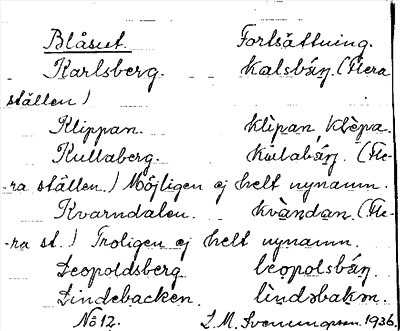 Blåsut. Fortsättning.
Karlsberg. kalsbárj. (Flera
ställen.)
Klippan. klìpan, klèpa.
Kullaberg. kulabárj. (Fle-
ra ställen.) Möjligen ej helt nynamn.
Kvarndalen. kvàndan. (Fle-
ra st.) Troligen ej helt nynamn.
Leopoldsberg leopolsbárj.
Lindebacken. lìndəbakən.
No 12. L. M. Svenungsson. 1936.